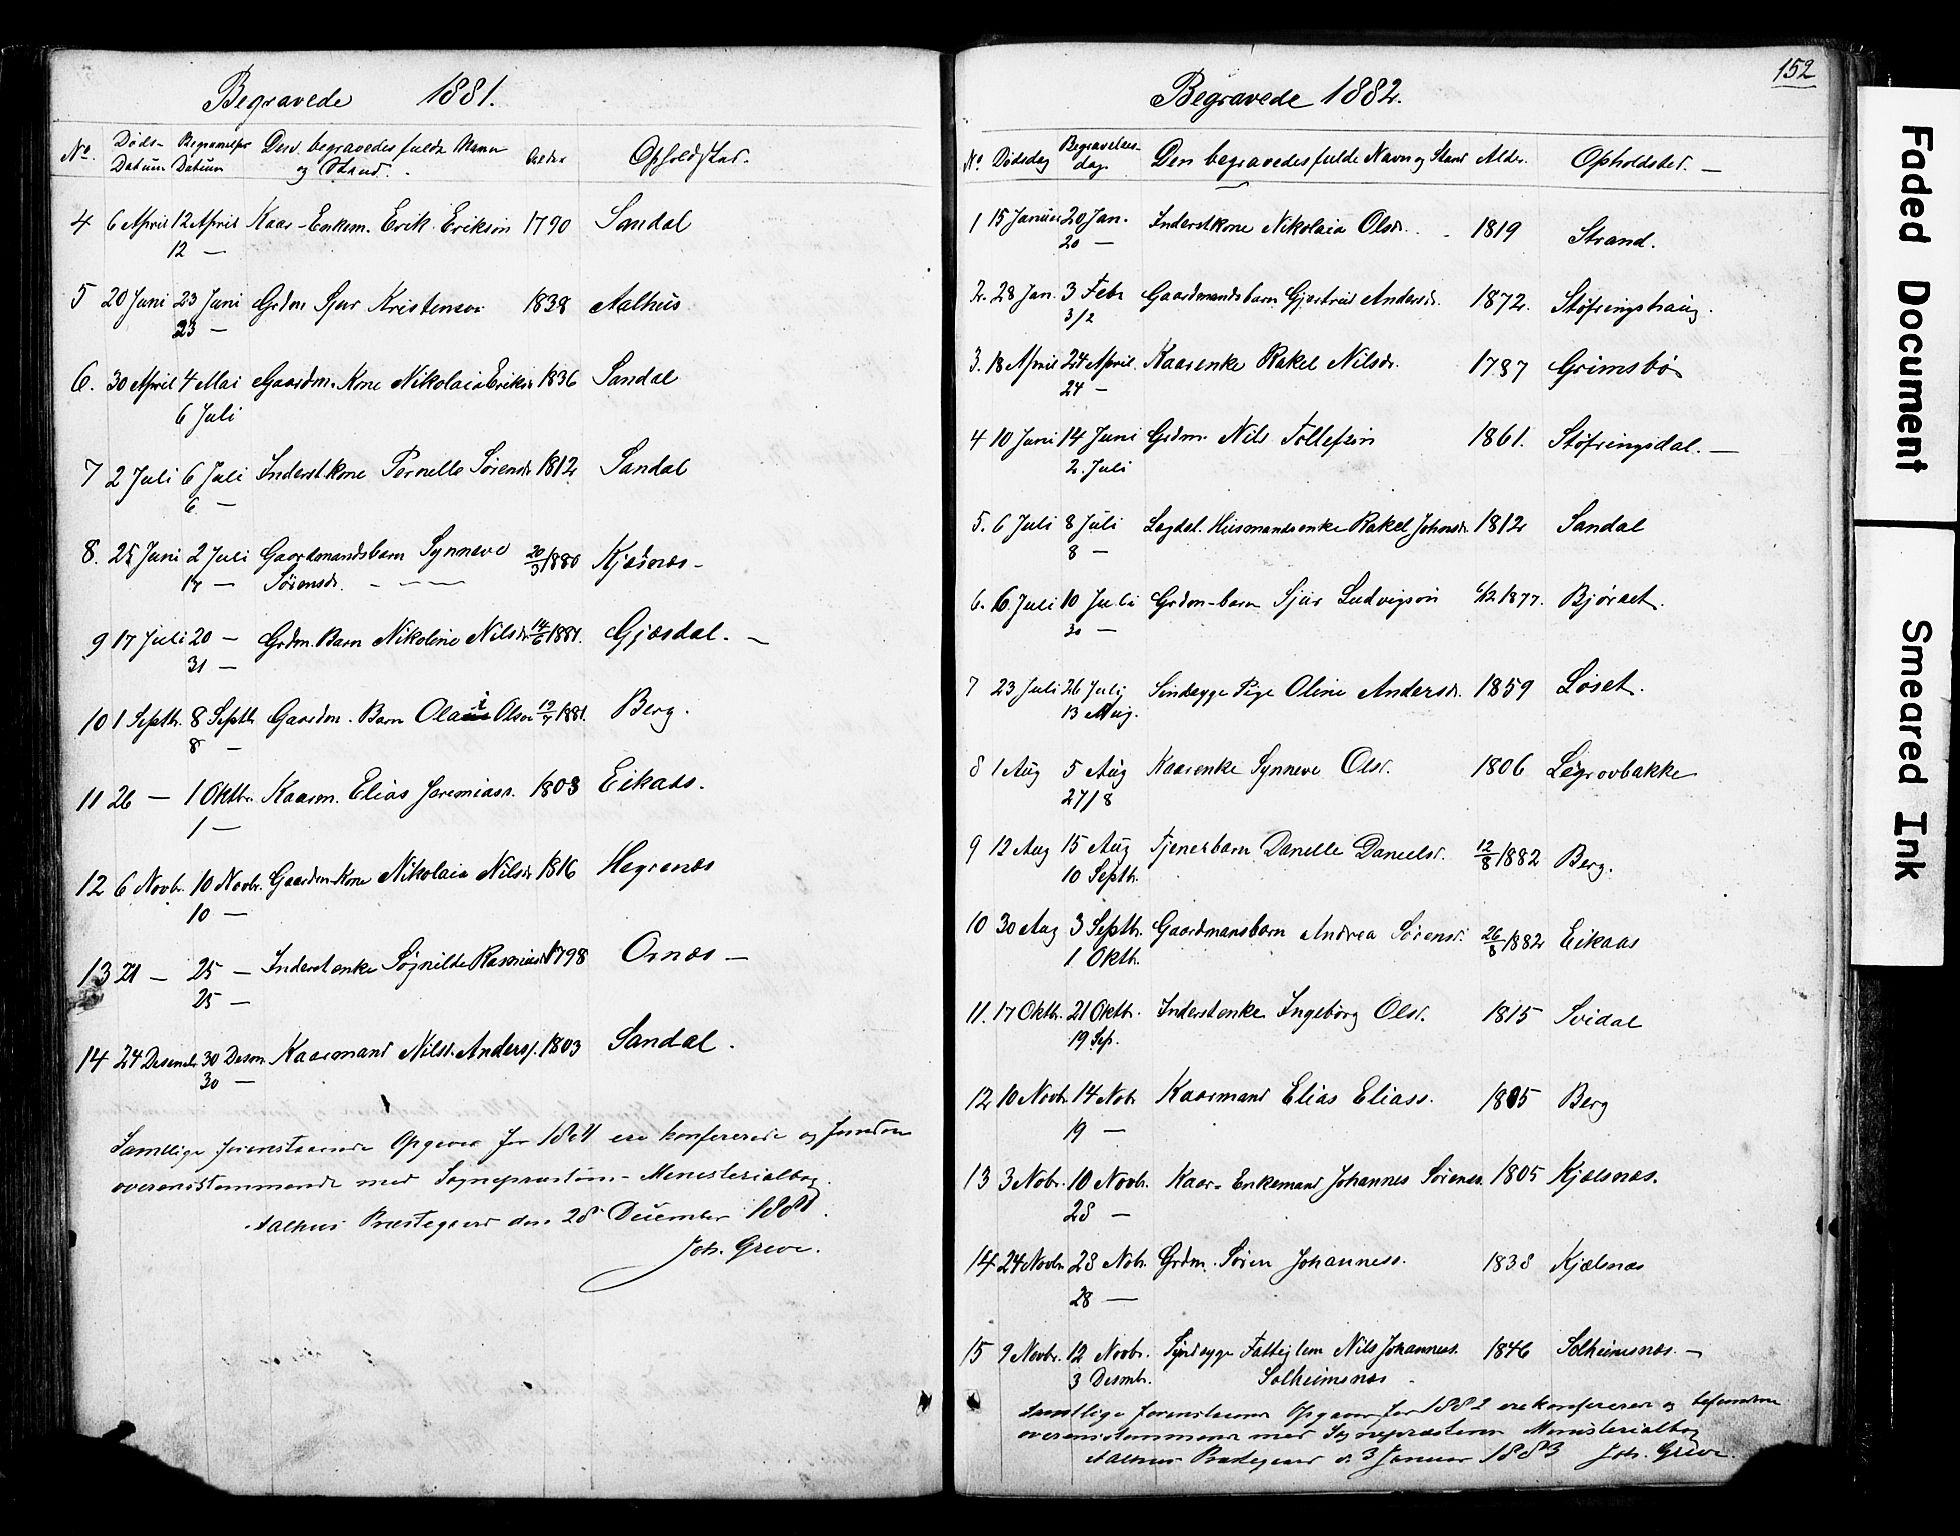 Begravede 1881.
No. Døds-Datum Begravelses Datum Den begravedes fulde Navn og Stand. Alder Opholdsted.
4 6 April 12 April Kaar-Enkem. Erik Eriksøn 1790 Sandal
12 —
5 20 Juni 23 Juni Grdm Sjur Kristensøn 1838 Aalhus
23 —
6. 30 April 4 Mai Gaardm. Kone Nikolaia Eriksd. 1836 Sandal
6 Juli
7 2 Juli 6 Juli Inderstkone Pernelle Sørensdr 1812 Sandal
6 —
8. 25 Juni 2 Juli Gaardmandsbarn Synneve 20/3 1880 Kjøsnæs -
17 — Sørensdr. - — —
9 17 Juli 20 — Grdm. Barn Nikoline Nilsdr 14/6 1881. Gjæsdal. —
31 —
10 1 Septb. 8 Septb Gaardm. Barn Olai Olson 12/7 1881. Berg.
8 —
11 26 — 1 Oktbr. Kaarm. Elias Jeremiass. 1803 Eikaas.
1 —
12 6 Novbr. 10 Novbr. Gaardm-Kone Nikolaia Nilsdr 1816 Hegrenæs
10 —
13 21 — 25 — Inderstenke Søgnilde Rasmusd 1798 Ornæs —
25 —
14 24 Desembr 30 Desem Kaarmand Nils Anders. 1803 Sandal.
30 —
Samtlige forenstaaende Opgaver for 1881 ere konfererede og funden
overensstemmende med Sogneprestens Ministerialbog.
Aalhus Præstegaard den 28 December 1881.
Joh. Greve.
152
Begravede 1882.
No Dødsdag Begravelses-dag. Den begravedes fulde Navn og Stand Alder. Opholdsted. —
1 15 Januar 20 Jan. Inderstkone Nikolaia Olsdr. - 1819 Strand.
20 —
2. 28 Jan. 3 Febr Gaardmandsbarn Gjertrud Andersdr. 1872. Støfringshaug.
3/2
3. 18 April 24 April. Kaarenke Rakel Nilsdr. 1787 Grimsbø
24 —
4 10 Juni 14 Juni Grdm. Nils Tollefsøn 1861. Støfringsdal. —
2. Juli
5. 6 Juli 8 Juli Lægdsl. Husmandsenke Rakel Johansdr. 1812 Sandal
8 —
6. 6 Juli 10 Juli Grdm-barn Sjur Ludvigsøn 6/12 1877. Bjørset.
30 —
7 23 Juli 26 July Sindsyge Pige Oline Andersdr. 1859 Løset.
13 Aug.
8 1 Aug 5 Aug Kaarenke Synneve Olsd. 1806 Legrovbakke
27/8
9 12 Aug 15 Aug Tjenerbarn Danelle Danielsd. 12/8 1882 Berg.
10 Septb.
10 30 Aug 3 Septb. Gaardmansbarn Andrea Sørensd. 26/8 1882 Eikaas
1 Oktb.
11. 17 Oktb. 21 Oktb. Inderstenke Ingeborg Olsd. 1815 Svidal
19 Sep.
12 10 Novbr 14 Nobr Kaarmand Elias Eliass. 1805 Berg
19 —
13 3 Nobr. 10 Novbr. Kaar-Enkemand Johannes Sørens. 1805 Kjøsnæs.
28 —
14 24 Novbr 28 Nobr. Grdm. Søren Johanness. 1838 Kjøsnæs
28 —
15 9 Novbr. 12 Novbr. Sindsyge Fattiglem Nils Johanness. 1846 Solheimsnæs. —
3 Desmb. Solheimsnæs
Samtlige forenstaaende Opgaver for 1882 ere konfererede og befundne
overensstemmende med Sogneprestens Ministerialbog
Aalhus Præstegaard d. 3 Januar 1883 Joh. Greve.
Faded Document
Smeared Ink